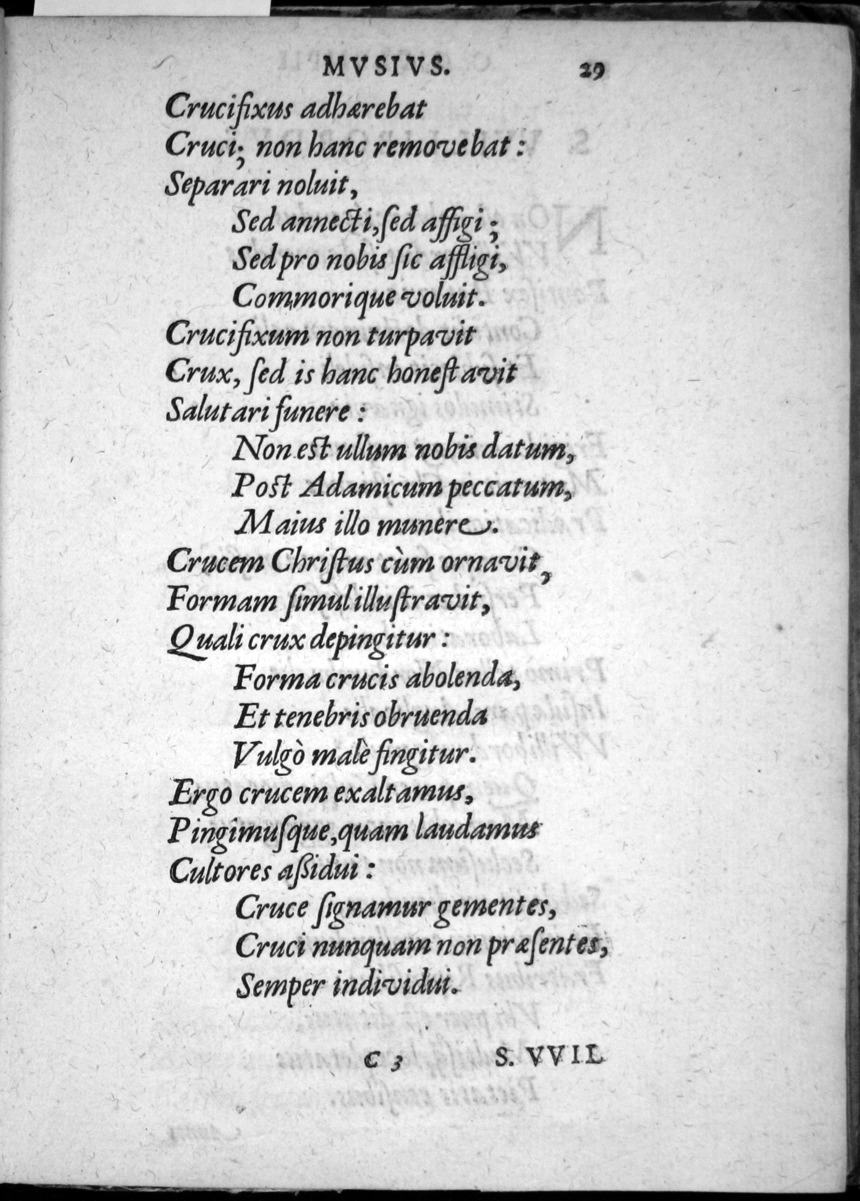 MVSIVS. 29
Crucifixus adhærebat
Cruci; non hanc removebat:
Separari noluit,
Sed annecti, ſed affigi;
Sed pro nobis ſic affligi,
Commorique voluit.
Crucifixum non turpavit
Crux, ſed is hanc honeſtavit
Salutari funere:
Non eſt ullum nobis datum,
Poſt Adamicum peccatum,
Maius illo munere.
Crucem Chriſtus cùm ornavit,
Formam ſimul illuſtravit,
Quali crux depingitur:
Forma crucis abolenda,
Et tenebris obruenda
Vulgò malè fingitur.
Ergo crucem exaltamus,
Pingimuſque, quam laudamus
Cultores aſſidui:
Cruce ſignamur gementes,
Cruci nunquam non præſentes,
Semper individui.
C 3 S. VVIL